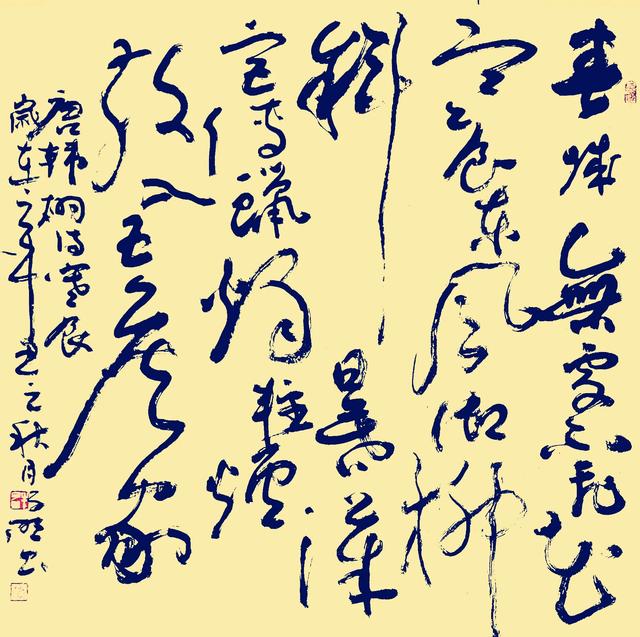 春城無處不飛花
寒食東風御柳
斜日暮漢
宮傳蠟燭輕煙
散入五侯家
唐韓翃詩寒食
歲在 秋月 書